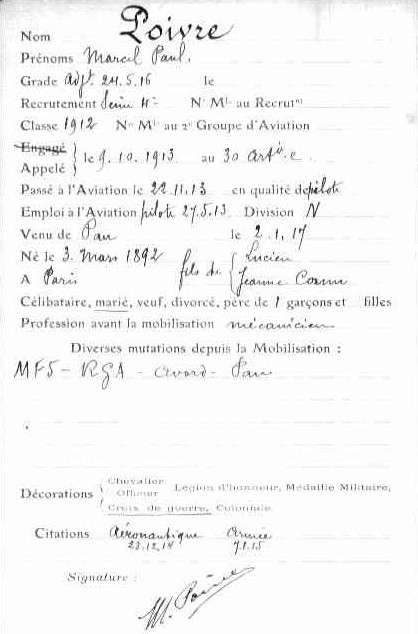 Nom Poivre
Prénoms Marcel Paul.
Grade Adjt 24.5.16 le
Recrutement Seine 4e Nº Mle au Recrutnt
Classe 1912 Nº Mle au 2e Groupe d'Aviation
Engagé
Appelé } le 9.10.1913 au 30 Artie
Passé à l'Aviation le 22.11.13 en qualité de pilote
Emploi à l'Aviation pilote 27.5.13 Division N
Venu de Pau le 2.1.17
Né le 3 Mars 1892 fils de { Lucien
A Paris Jeanne
Célibataire, marié, veuf, divorcé, père de 1 garçons et filles
Profession avant la mobilisation mécanicien
Diverses mutations depuis la Mobilisation :
MF5 - RGA - Avord - Pau
Décorations { Chevalier
Officier Légion d'honneur, Médaille Militaire,
Croix de guerre, Coloniale
Citations Aéronautique Armée
23.12.14 7.1.15
Signature :
M. Poivre